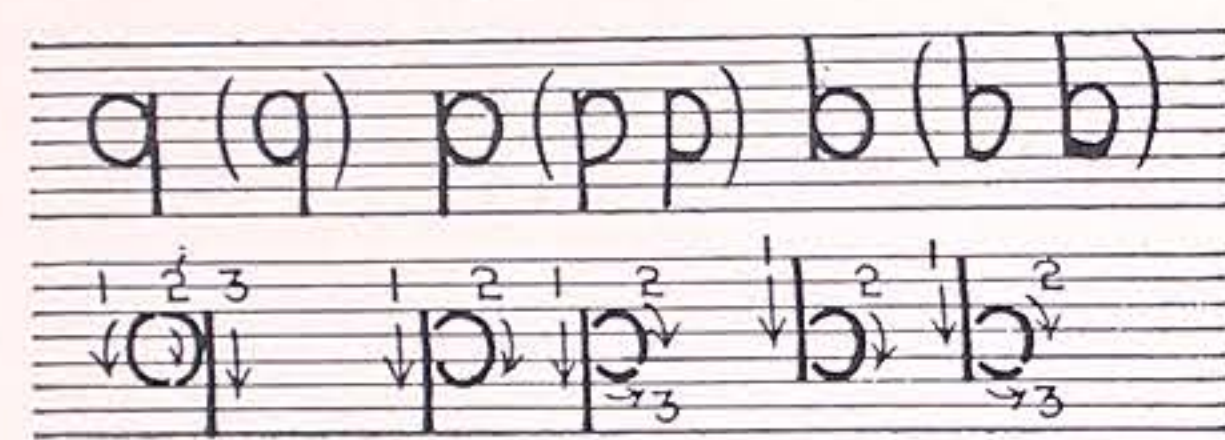 q (q) p (p p) b (b b)
1 2 3 1 2 1 2 1 2 1 2
3 3